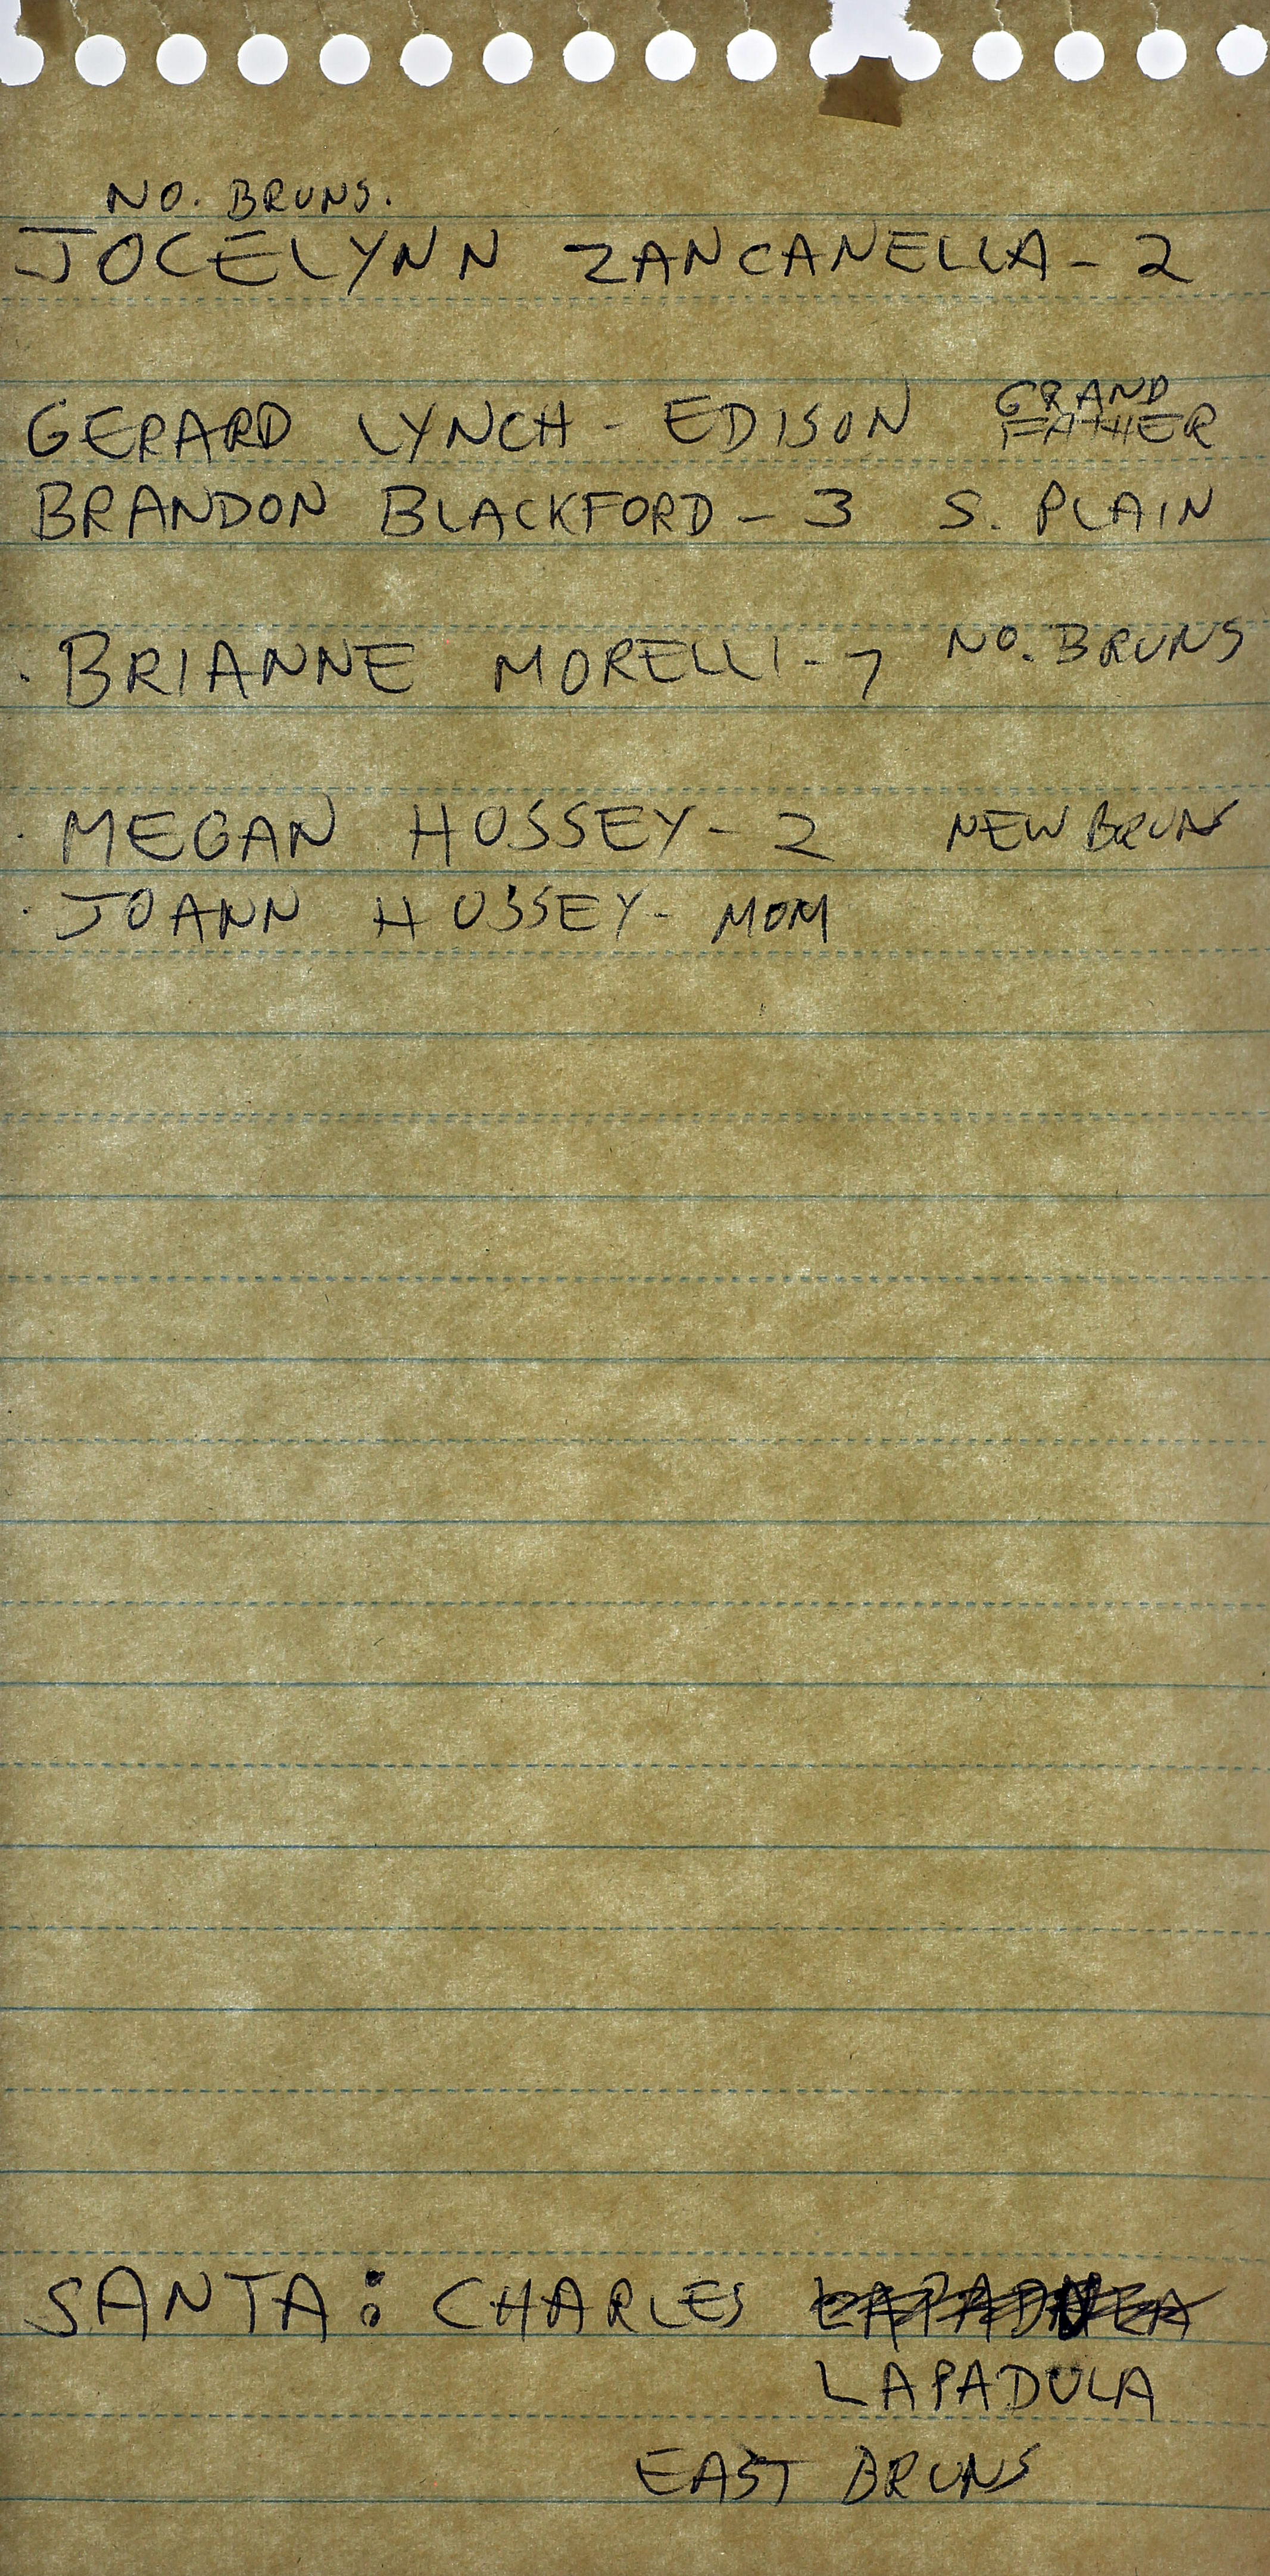 NO. BRUNS.
JOCELYNN ZANCANELLA - 2
GERARD LYNCH - EDISON GRAND FATHER
BRANDON BLACKFORD - 3 S. PLAIN
· BRIANNE MORELLI - 7 NO. BRUNS
· MEGAN HUSSEY - 2 NEW BRUNS
· JOANN HUSSEY - MOM
SANTA: CHARLES
LAPADULA
EAST BRUNS